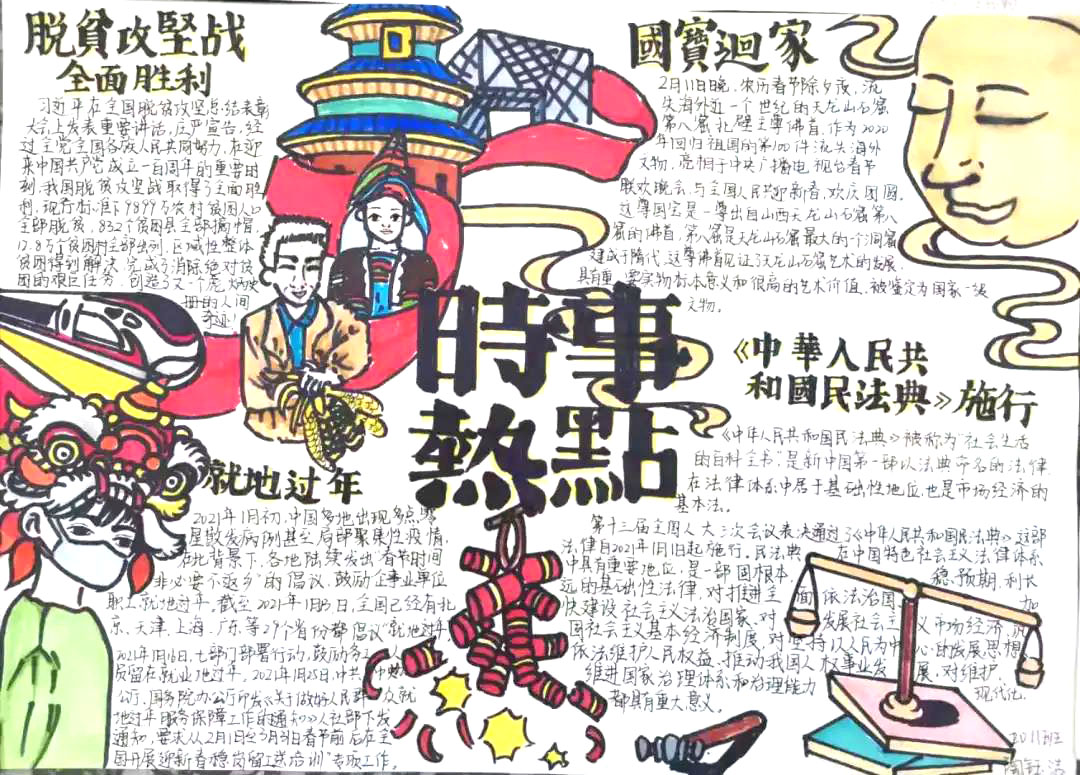 脱貧攻堅战
全面胜利
习近平在全国脱贫攻坚总结表彰
大会上发表重要讲话，庄严宣告，经
过全党全国各族人民共同努力，在迎
来中国共产党成立一百周年的重要时
刻，我国脱贫攻坚战取得了全面胜
利，现行标准下9899万农村贫困人口
全部脱贫，832个贫困县全部摘帽，
12.8万个贫困村全部出列，区域性整体
贫困得到解决，完成了消除绝对贫
困的艰巨任务，创造了又一个彪炳史
册的人间
奇迹！
國寶迴家
2月11日晚，农历春节除夕夜，流
失海外近一个世纪的天龙山石窟
第八窟北壁主尊佛首，作为2020
年回归祖国的第100件流失海外
文物，亮相于中央广播电视总台春节
联欢晚会，与全国人民共迎新春，欢庆团圆。
这尊国宝是一尊出自山西天龙山石窟第八
窟的佛首，第八窟是天龙山石窟最大的一个洞窟
建成于隋代，这尊佛首见证了天龙山石窟艺术的发展，
具有重要实物标本意义和很高的艺术价值，被鉴定为国家一级
文物。
時事
熱點
《中華人民共
和國民法典》施行
《中华人民共和国民法典》被称为“社会生活
的百科全书”，是新中国第一部以法典命名的法律，
在法律体系中居于基础性地位，也是市场经济的
基本法。
第十三届全国人大三次会议表决通过了《中华人民共和国民法典》，这部
法律自2021年1月1日起施行。民法典在中国特色社会主义法律体系
中具有重要地位，是一部固根本、稳预期、利长
远的基础性法律，对推进全面依法治国、加
快建设社会主义法治国家，对发展社会主义市场经济、巩
固社会主义基本经济制度，对坚持以人民为中心的发展思想、
依法维护人民权益、推动我国人权事业发展，对维护
推进国家治理体系和治理能力现代化，
都具有重大意义。
就地过年
2021年1月初，中国多地出现多点零
星散发病例甚至局部聚集性疫情，
在此背景下，各地陆续发出“春节时间
非必要不返乡”的倡议，鼓励企事业单位
职工就地过年。截至2021年1月日，全国已经有北
京、天津、上海、广东等29个省份都倡议“就地过年”
2021年1月16日，七部门部署行动，鼓励务工人
员留在就业地过年。2021年1月25日，中共中央办
公厅、国务院办公厅印发《关于做好人民群众就
地过年服务保障工作的通知》，人社部下发
通知，要求从2月1日至3月31日春节前后在全
国开展“迎新春稳岗留工送培训”专项工作。
2011班